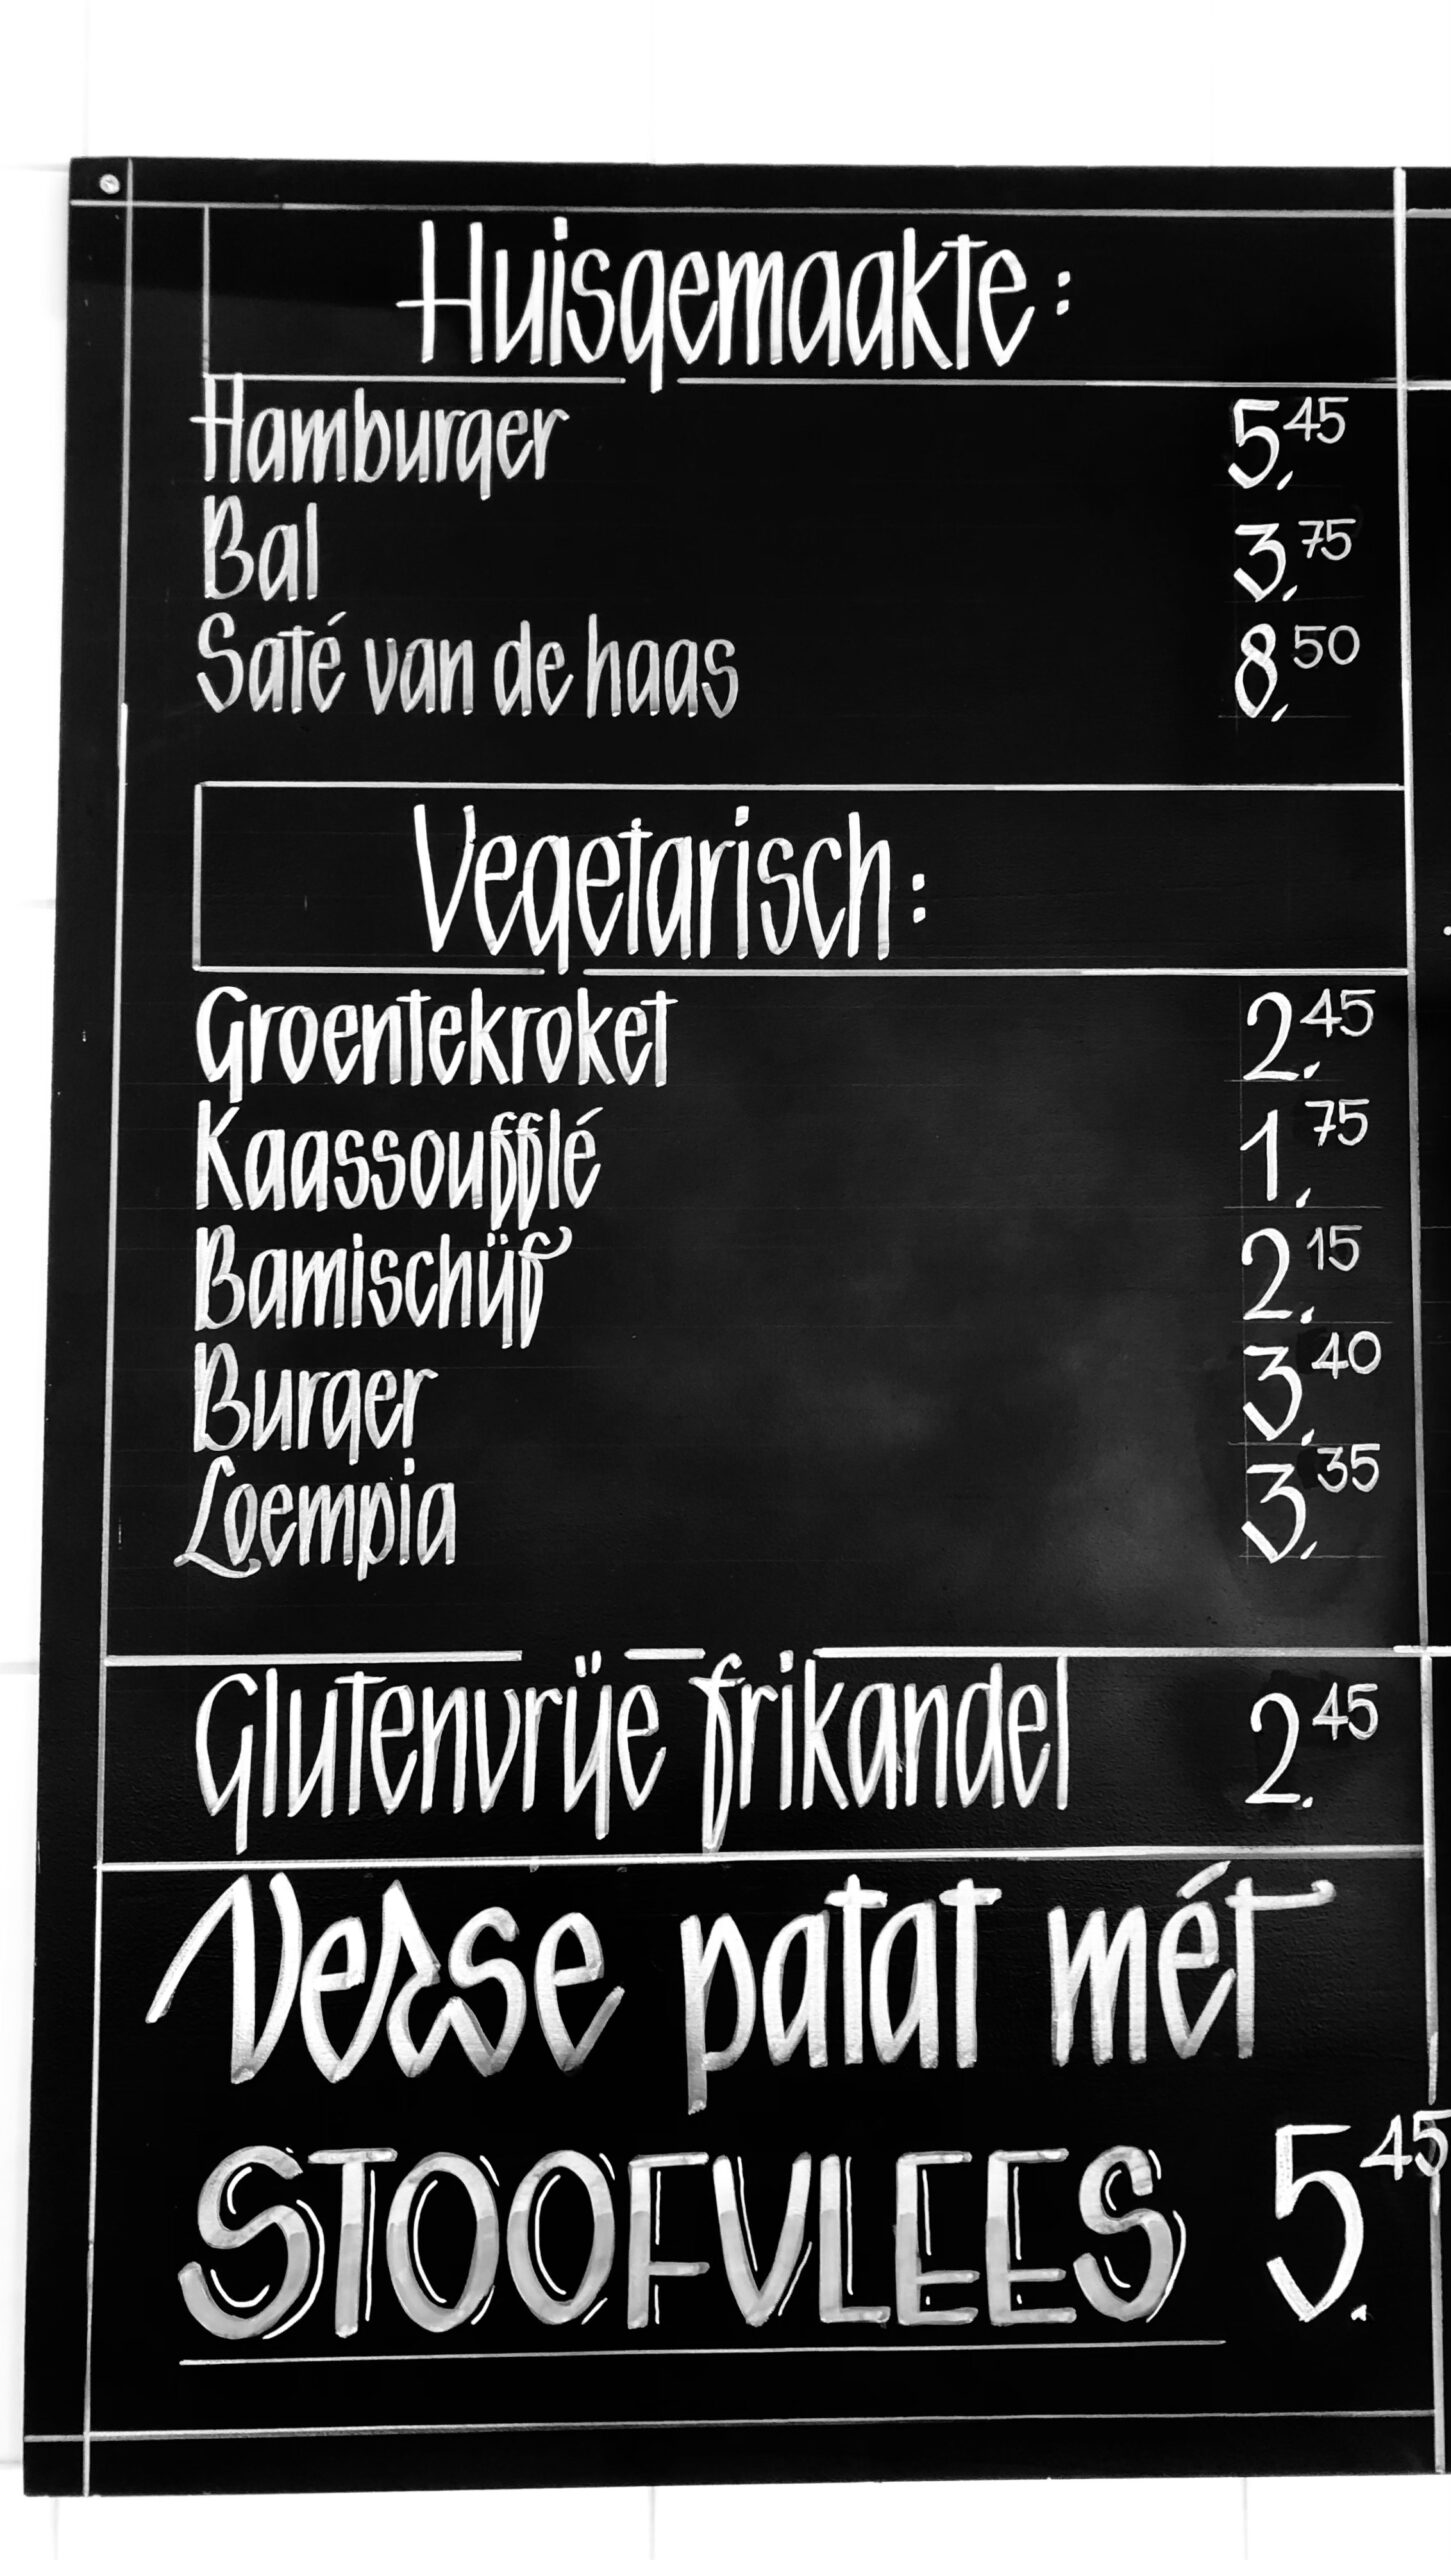 Huisgemaakte:
Hamburger 5,45
Bal 3,75
Saté van de haas 8,50
Vegetarisch:
Groentekroket 2,45
Kaassoufflé 1,75
Bamischijf 2,15
Burger 3,40
Loempia 3,35
Glutenvrije frikandel 2,45
Verse patat mét
STOOFVLEES 5,45